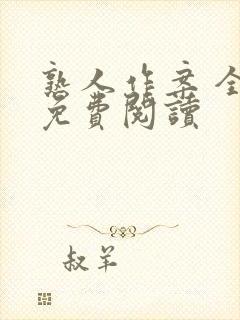 熟人作案全
免費閱讀
叔羊